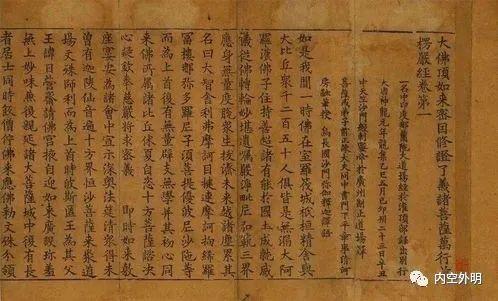 大佛頂如來密因修證了義諸菩薩萬行
楞嚴經卷第一
一名中印度那蘭陀大道場經於灌頂部錄出別行
大唐神龍元年龍集乙巳五月己卯朔二十三日辛丑
中天竺沙門般剌蜜帝於廣州制止道場譯
菩薩戒弟子前正諫大夫同中書門下平章事清河
房融筆授 烏長國沙門彌伽釋迦譯語
如是我聞一時佛在室羅筏城祇桓精舍與
大比丘衆千二百五十人俱皆是無漏大阿
羅漢佛子住持善超諸有能於國土成就威
儀從佛轉輪妙堪遺囑嚴淨毗尼弘範三界
應身無量度脫衆生拔濟未來越諸塵累其
名曰大智舍利弗摩訶目揵連摩訶拘絺羅
富樓那彌多羅尼子須菩提優波尼沙陁等
而為上首復有無量辟支無學并其初心同
來佛所屬諸比丘休夏自恣十方菩薩諮決
心疑欽奉慈嚴將求密義 即時如來敷
座宴安為諸會中宣示深奧法筵清衆得未
曾有迦陵仙音遍十方界恒沙菩薩來聚道
場文殊師利而為上首時波斯匿王為其父
王諱日營齋請佛宮掖自迎如來廣設珍羞
無上妙味兼復親延諸大菩薩城中復有長
者居士同時飯僧佇佛來應佛勅文殊分領
内空外明